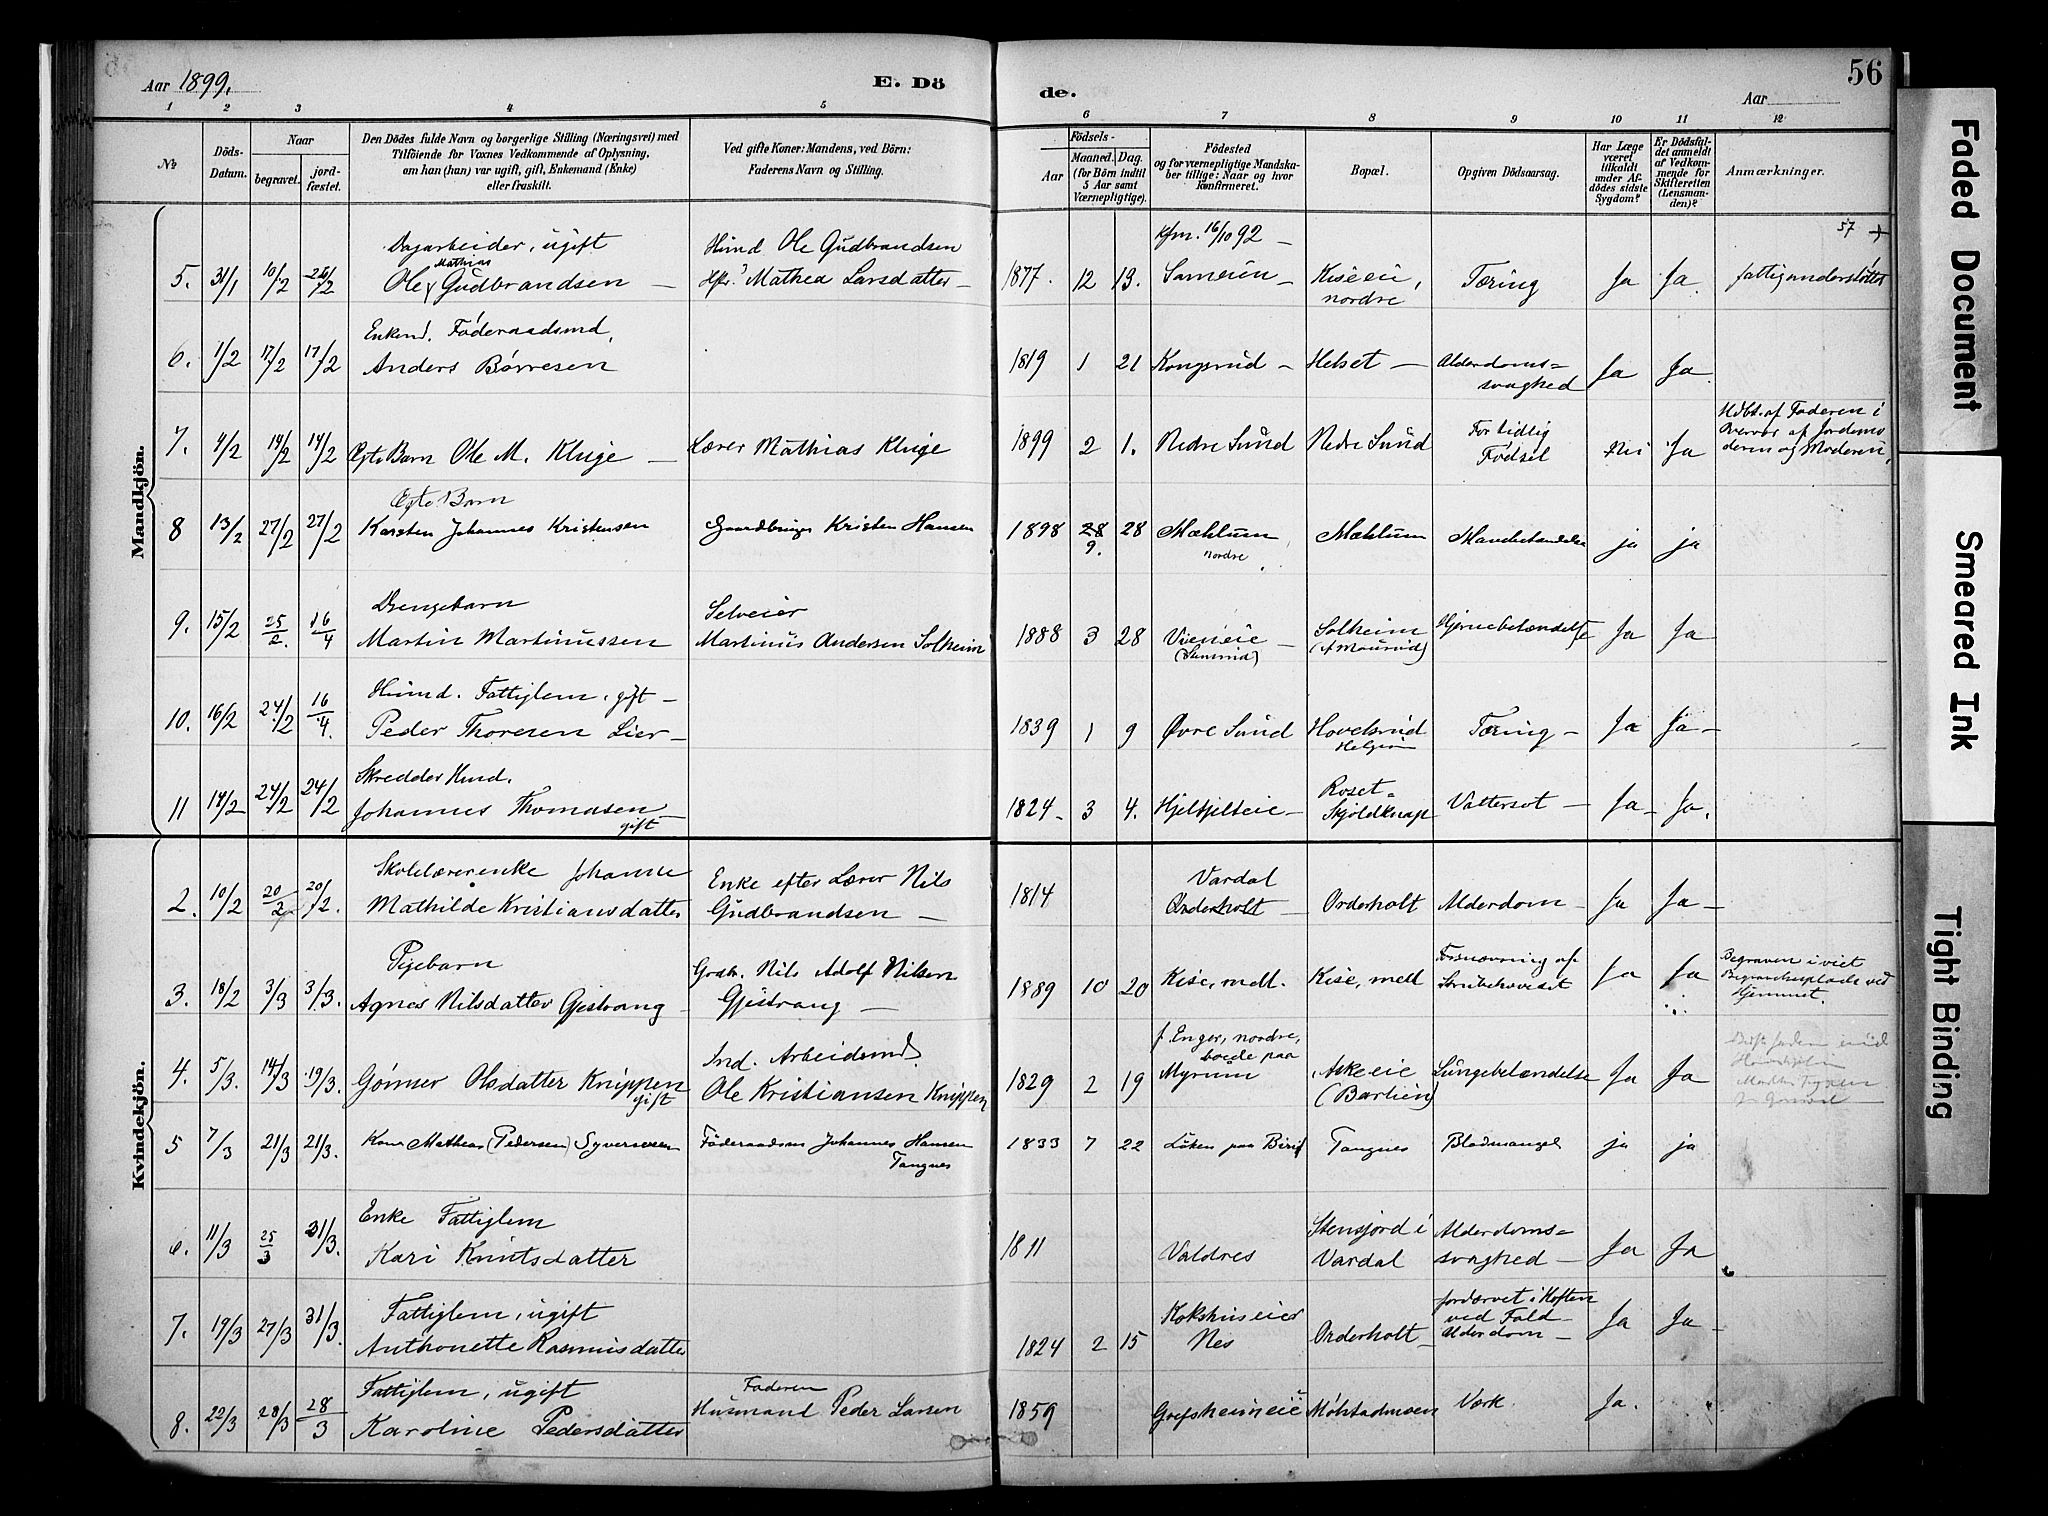 Aar 1899.
E. Dö
de.
Aar
56
1 2 3 4 5 6 7 8 9 10 11 12
№
Döds-
Datum.
Naar
begravet.
jord-
fæstet.
Den Dödes fulde Navn og borgerlige Stilling (Næringsvei) med
Tilföiende for Voxnes Vedkommende af Oplysning,
om han (hun) var ugift, gift, Enkemand (Enke)
eller fraskilt.
Ved gifte Koner: Mandens, ved Börn:
Faderens Navn og Stilling.
Födsels-
Aar
Maaned. Dag.
(for Börn indtil
5 Aar samt
Værnepligtige).
Födested
og for værnepligtige Mandska-
ber tillige: Naar og hvor
konfirmeret.
Bopæl.
Opgiven Dödsaarsag.
Har Læge
været
tilkaldt
under Af-
dödes sidste
Sygdom?
Er Dödsfal-
det anmeldt
af Vedkom-
mende for
Skifteretten
(Lensman-
den)?
Anmærkninger.
Mandkjön.
Dagarbeider, ugift Husmd Ole Gudbrandsen Kfm. 16/10 92 — 57 +
Mathias
5. 31/1 10/2 26/2 Ole Gudbrandsen — Mathea Larsdatter — 1877. 12 13. Kiseeie, nordre Tæring Ja Ja. fattigunderstøttet
Enkemd. Føderaadsmd,
6. 1/2 17/2 17/2 Anders Børresen 1819 1 21 Kongsrud — Helset — Alderdoms=
svaghed Ja Ja.
7. 4/2 14/2 14/2 Ægte Barn Ole M. Kluge — Lærer Mathias Kluge 1899 2 1. Nedre Sund Nedre Sund For tidlig
Fødsel Nei Ja Hdbt. af Faderen i
Overvær af Jordemo
deren og Moderen,
Ægte Barn
8 13/2 27/2 27/2 Karsten Johannes Kristensen Gaardbruger Kristen Hansen 1898 28 9. 28 Mæhlum
nordre Mæhlum Mavebetændelse ja ja
Drengebarn Selveier
9. 15/2 25/2. 16/4 Martin Martinussen Martinus Andersen Solheim 1888 3 28 Solheim Hjernebetændelse Ja Ja
Husmd. Fattiglem. gift —
10. 16/2 24/2 16/4. Peder Thoresen Lier — 1839 1 9 Øvre Sund Hovelsrud
Helgøen Tæring — Ja Ja —
Skredder Husmd.
11 14/2 24/2 24/2 Johannes Thomasen
gift 1824 — 3 4. Hjelkjelseie — Roset —
Skjoldknap Vattersot — Ja — Ja.
Kvindekjön.
Skolelærerenke Johanne Enke efter Lærer Nils Vardal
2. 10/2 20/2 20/2. Mathilde Kristiansdatter Gudbrandsen — 1814 Orderholt — Orderholt Alderdom — Ja Ja —
Pigebarn
3. 18/2 3/3 3/3. Agnes Nilsdatter Gjestvang Grdbr. Nils Adolf Nilsen
Gjestvang — 1889 10 20 Kise, mell. Kise, mell Forsnævring af
Strubehovedet Ja Ja Begraven i viet
Begravelsesplads ved
Hjemmet.
4. 5/3. 14/3 19/3. Olsdatter Knippen
gift Ind. Arbeidsmd
Ole Kristiansen Knippen 1829 2 19 f. Enger, nordre,
boede paa
Myrum Askeeie
(Barlien) Lungebetændelse Ja Ja
5 7/3 21/3 21/3. Kone Mathea (Pedersen) Syversen Føderaadsm Johannes Hansen
Tangnes 1833 7 22 Løken paa Biri Tangnes Blodmangel ja ja
Enke Fattiglem
6. 11/3 25/3 31/3. Kari Knutsdatter 1811 Valdres Stensjord i
Vardal Alderdoms=
svaghed — Ja Ja
Fattiglem, ugift
7. 19/3 27/3 31/3. Anthonette Rasmusdatter 1824 2 15 Kokshuseier
Nes Orderholt — fordærvet i Hoften
ved Fald
Alderdom — Ja Ja —
Fattiglem, ugift Faderen
8. 22/3 28/3 28/3 Karoline Pedersdatter Husmand Peder Larsen 1859 Grefsheimeie Møhstadmoen Værk. Ja.
Faded Document
Smeared Ink
Tight Binding